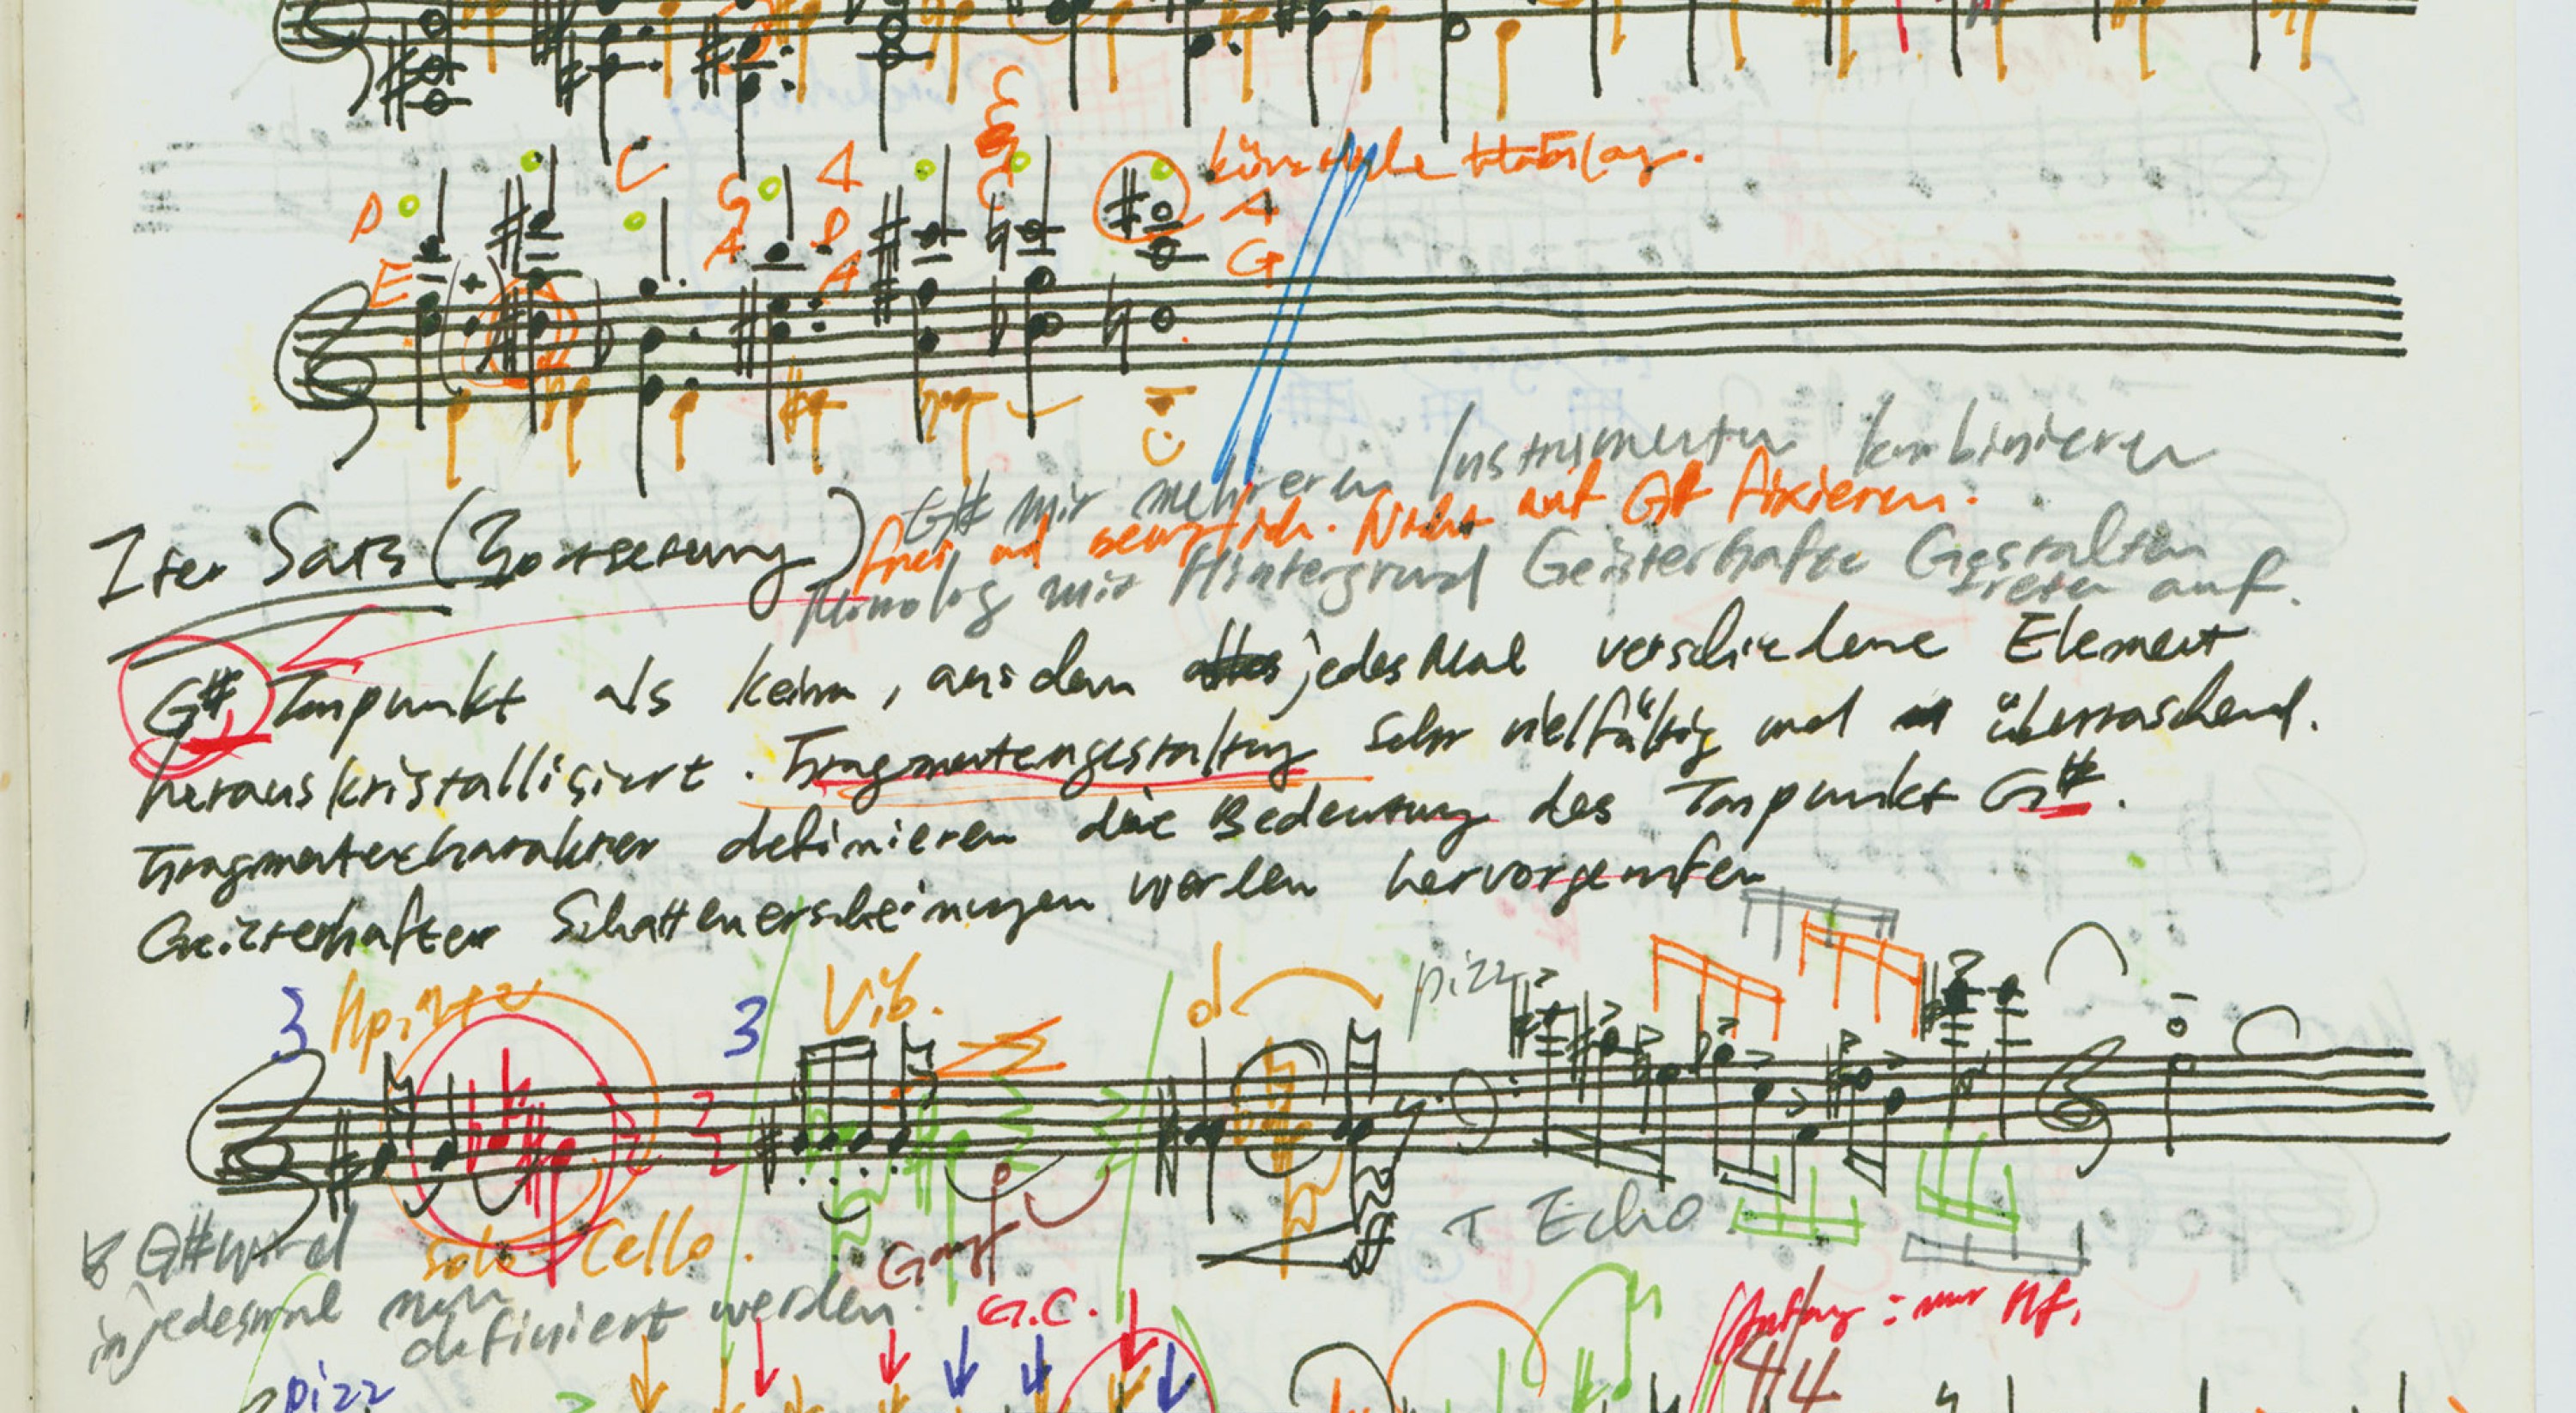 D
C
G
A
A
D
A
C
C
A
G
E
G# mit mehreren Instrumenten kombinieren
frei und beweglich. Nicht auf G# fixieren.
Iter Satz (Fortsetzung)
Monolog mit Hintergrund Geisterhafte Gestalten
treten auf.
G# Tonpunkt als Keim, aus dem jedes Mal verschiedene Element
herauskristallisiert. Fragmentengestaltung sehr vielfältig und überraschend.
Fragmentencharakter definieren die Bedeutung des Tonpunkt G#.
Geisterhafter Schattenerscheinungen werden hervorgerufen
3
3 Vib.
pizz
G# wird Solo Cello.
jedesmal neu
definiert werden.
Gong
G.C.
Echo
Anfang: nur Hf.
44
pizz